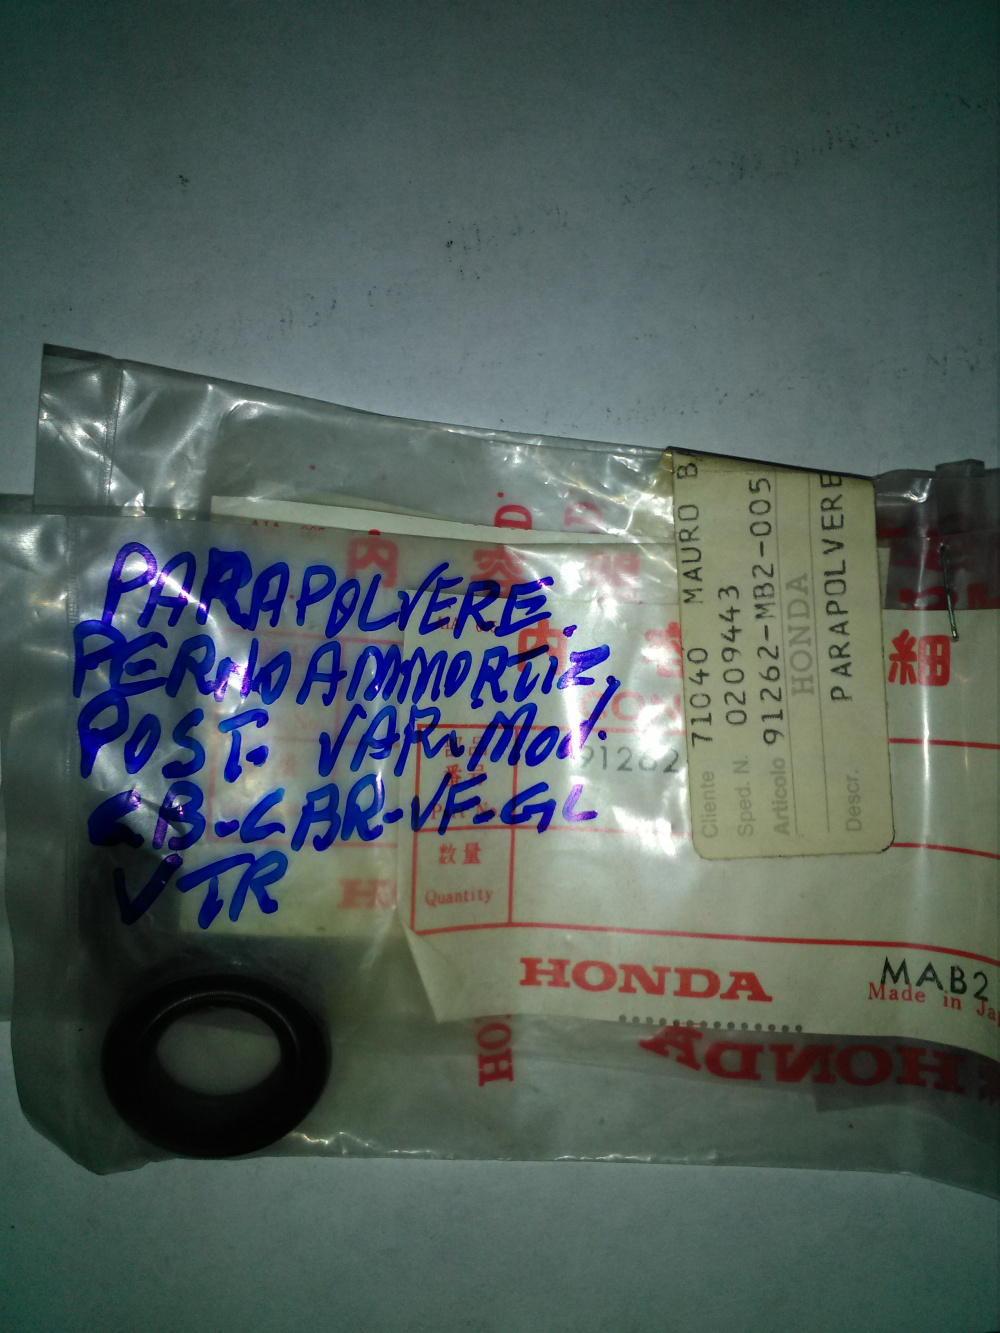 PARAPOLVERE.
PERNO AMMORTIZ.
POST. VAR. Mod.
CB-CBR-VF-GL
VTR
Cliente 71040 MAURO B
Sped. N. 0209443
Articolo 91262-MB2-005
HONDA
Descr. PARAPOLVERE
細
部品
番号
91262
数量
Quantity
HONDA
MAB2
Made in Ja
HONDA
HONDA